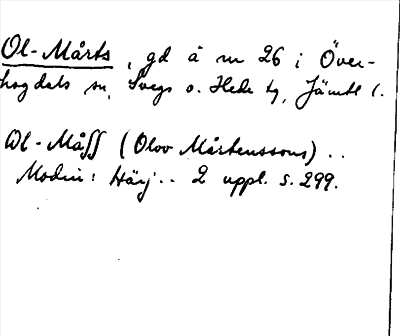 Ol-Mårts, gd å nr 26 i Över-
hogdals sn, Svegs o. Hede tg, Jämtl l.
Ol-Måss (Olov Mårtenssons) ..
Modin: Härj.. 2 uppl. s. 299.